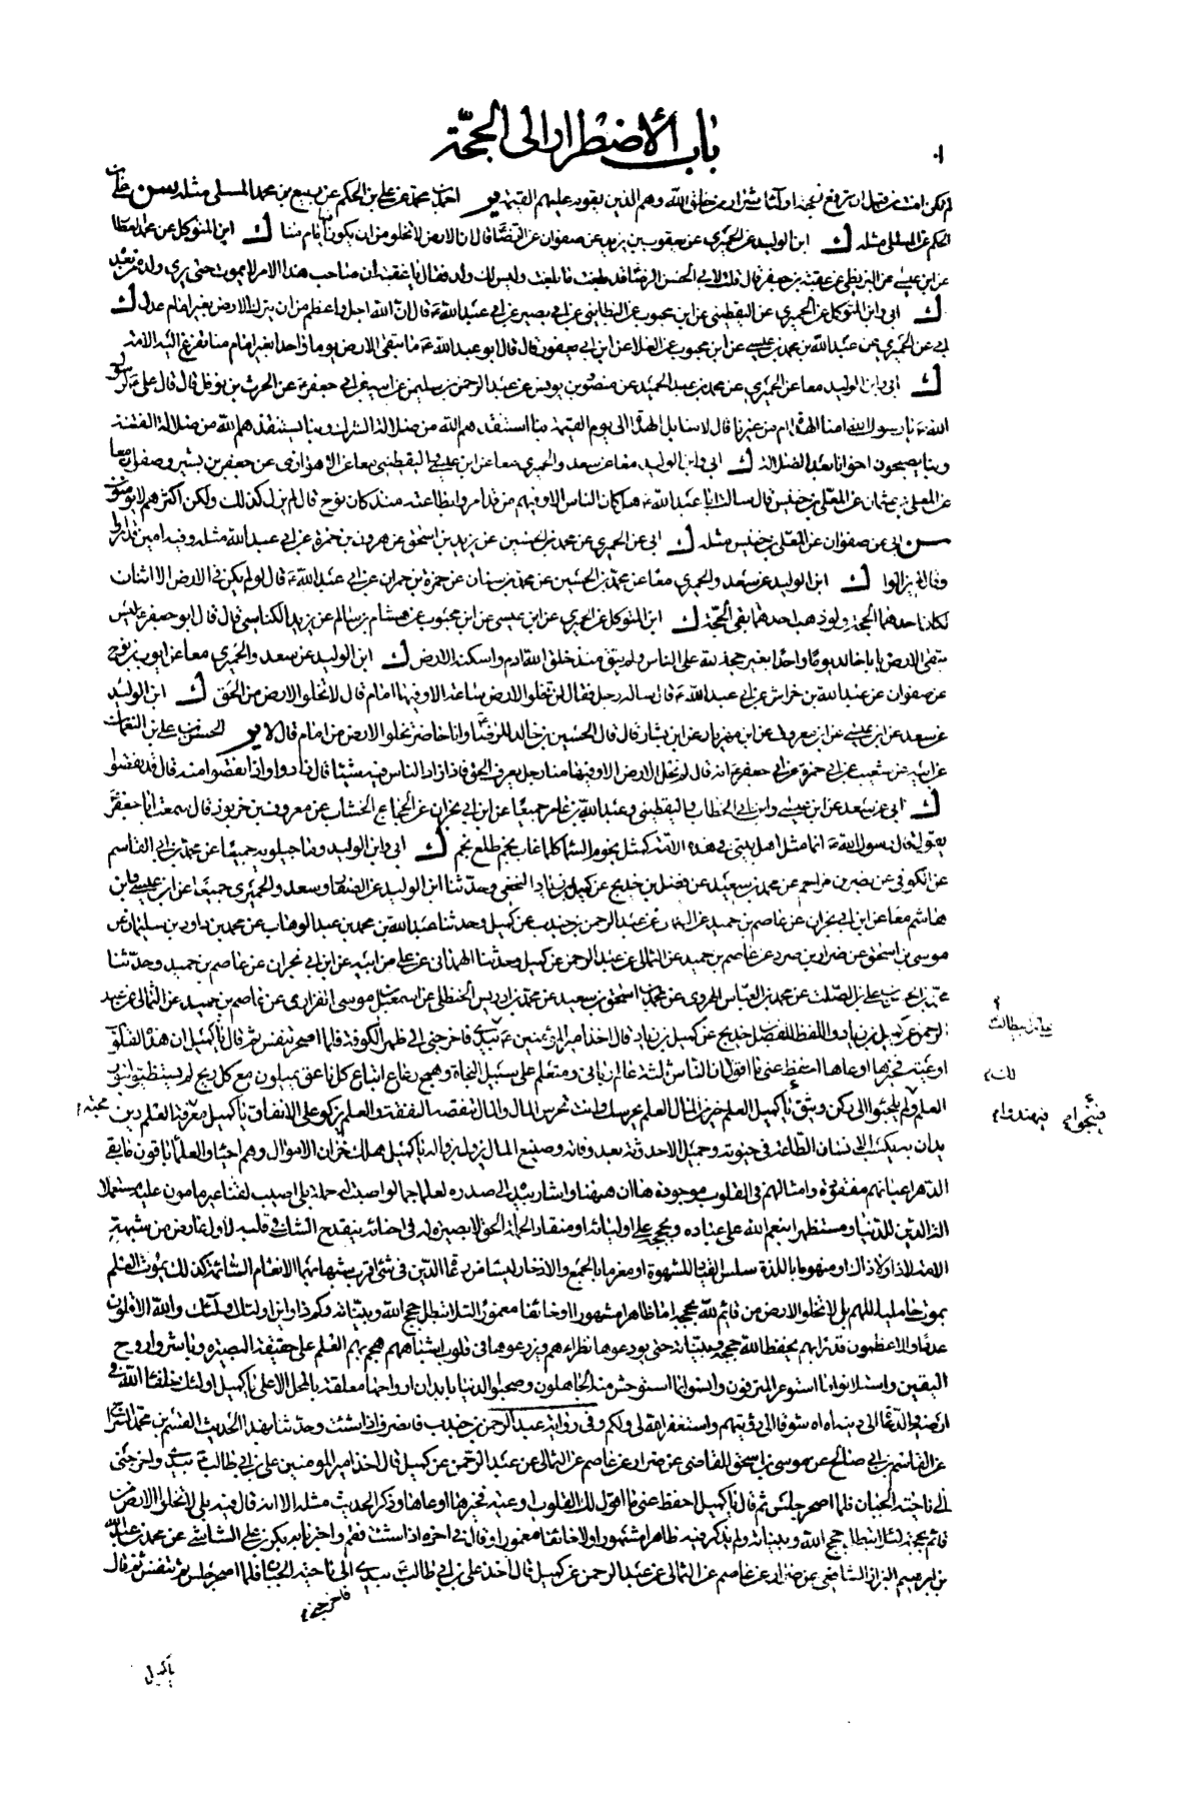 باب الاضطرار الى الحجة
لم تكن امنت من قبل ان ترفع الحجة اولئك شرار من خلق الله وهم الذين يقوم عليهم القيمة ير احمد بن محمد عن علي بن الحكم عن ربيع بن محمد المسلي مثله سن علي بن
الحكم عن المسلي مثله ك ابن الوليد عن الحميري عن يعقوب بن يزيد عن صفوان عن الرضا قال ان الارض لا تخلو من ان يكون فيها امام منا ك ابن المتوكل عن محمد العطار
عن ابن عيسى عن البزنطي عن عقبة بن جعفر قال قلت لابي الحسن الرضا قد بلغت ما بلغت وليس لك ولد فقال يا عقبة ان صاحب هذا الامر لا يموت حتى يرى ولده من بعده
ك ابي وابن المتوكل عن الحميري عن اليقطيني عن ابن محبوب عن البطايني عن ابي بصير عن ابي عبد الله ع قال ان الله اجل واعظم من ان يترك الارض بغير امام عدل ك
ابي عن الحميري عن عبد الله بن محمد بن عيسى عن ابن محبوب عن العلا عن ابن ابي يعفور قال قال ابو عبد الله ع ما تبقى الارض يوما واحدا بغير امام منا تفزع اليه الامة
ك ابي وابن الوليد معا عن الحميري عن محمد بن عبد الحميد عن منصور بن يونس عن عبد الرحمن بن سليمن عن ابيه عن ابي جعفر ع عن الحرث بن نوفل قال قال علي ع لرسول
الله ص يا رسول الله امنا الهداة ام من غيرنا قال لا بل منا الهداة الى يوم القيمة بنا استنقذهم الله من ضلالة الشرك وبنا يستنقذهم الله من ضلالة الفتنة
وبنا يصبحون اخوانا بعد الضلالة ك ابي وابن الوليد معا عن سعد والحميري معا عن ابن عيسى واليقطيني معا عن الاهوازي عن جعفر بن بشير وصفوان معا
عن المعلى بن عثمان عن المعلى بن خنيس قال سالت ابا عبد الله ع هل كان الناس الا وفيهم من قد امروا بطاعته منذ كان نوح قال لم يزل كذلك ولكن اكثرهم لا يؤمنون
سن ابي عن صفوان عن المعلى بن خنيس مثله ك ابي عن الحميري عن محمد بن الحسين عن يزيد بن اسحق عن هرون بن حمزة عن ابي عبد الله مثله وفيه
وقال لم يزالوا ك ابن الوليد عن سعد والحميري معا عن محمد بن الحسين عن محمد بن سنان عن حمزة بن حمران عن ابي عبد الله ع قال لو لم يكن في الارض الا اثنان
لكان احدهما الحجة ولو ذهب احدهما بقي الحجة ك ابن المتوكل عن الحميري عن ابن عيسى عن ابن محبوب عن هشام بن سالم عن يزيد الكناسي قال قال ابو جعفر ع ليس
تبقى الارض يا با خالد يوما واحدا بغير حجة لله على الناس ولم يبق منذ خلق الله ادم واسكنه الارض ك ابن الوليد عن سعد والحميري معا عن ايوب بن نوح
عن صفوان عن عبد الله بن خراش عن ابي عبد الله ع قال ساله رجل فقال لن تخلو الارض ساعة الا وفيها امام قال لا تخلو الارض من الحق ك ابن الوليد
عن سعد عن ابن عيسى عن ابن معروف عن ابن مهزيار عن ابن بشار قال قال الحسين بن خالد للرضا ع وانا حاضر تخلو الارض من امام قال لا ير الحسن بن علي بن النعمان
عن ابيه عن شعيب عن ابي حمزة عن ابي جعفر ع انه قال لم تخل الارض الا وفيها منا رجل يعرف الحق فاذا زاد الناس فيه شيئا قال زادوا واذا نقصوا منه قال قد نقصوا
ك ابي عن سعد عن ابن عيسى وابن ابي الخطاب واليقطيني وعبد الله بن عامر جميعا عن ابن ابي نجران عن الحجاج الخشاب عن معروف بن خربوذ قال سمعت ابا جعفر ع
يقول قال رسول الله ص انما مثل اهل بيتي في هذه الامة كمثل نجوم السما كلما غاب نجم طلع نجم ك ابي وابن الوليد وماجيلويه جميعا عن محمد بن ابي القاسم
عن الكوفي عن نصر بن مزاحم عن محمد بن سعيد عن فضيل بن خديج عن كميل بن زياد النخعي وحدثنا ابن الوليد عن الصفار وسعد والحميري جميعا عن ابن عيسى وابن
هاشم معا عن ابن ابي نجران عن عاصم بن حميد عن الثمالي عن عبد الرحمن بن جندب عن كميل وحدثنا عبد الله بن محمد بن عبد الوهاب عن محمد بن داود بن سليمان عن
موسى بن اسحق عن ضرار بن صرد عن عاصم بن حميد عن الثمالي عن عبد الرحمن عن كميل وحدثنا الهمداني عن علي عن ابيه عن ابن ابي نجران عن عاصم بن حميد وحدثنا
علي بن الصلت عن محمد بن العباس الهروي عن محمد بن اسحق بن سعيد عن محمد بن ادريس الحنظلي عن اسمعيل بن موسى الفزاري عن عاصم بن حميد عن الثمالي عن عبد
الرحمن عن كميل بن زياد واللفظ لفضيل بن خديج عن كميل بن زياد قال اخذ امير المؤمنين ع بيدي فاخرجني الى ظهر الكوفة فلما اصحر تنفس ثم قال يا كميل ان هذه القلوب
اوعية فخيرها اوعاها احفظ عني ما اقول الناس ثلثة عالم رباني ومتعلم على سبيل النجاة وهمج رعاع اتباع كل ناعق يميلون مع كل ريح لم يستضيئوا بنور
العلم ولم يلجئوا الى ركن وثيق يا كميل العلم خير من المال العلم يحرسك وانت تحرس المال والمال تنقصه النفقة والعلم يزكو على الانفاق يا كميل معرفة العلم دين
يدان به يكسب الانسان الطاعة في حيوته وجميل الاحدوثة بعد وفاته وصنيع المال يزول بزواله يا كميل هلك خزان الاموال وهم احياء والعلماء باقون ما بقي
الدهر اعيانهم مفقودة وامثالهم في القلوب موجودة ها ان ههنا واشار بيده الى صدره لعلما جما لو اصبت له حملة بلى اصيب لقنا غير مامون عليه مستعملا
الة الدين للدنيا ومستظهرا بنعم الله على عباده وبحججه على اوليائه او منقادا لحملة الحق لا بصيرة له في احنائه ينقدح الشك في قلبه لاول عارض من شبهة
الا لا ذا ولا ذاك او منهوما باللذة سلس القياد للشهوة او مغرما بالجمع والادخار ليسا من رعاة الدين في شئ اقرب شبها بهما الانعام السائمة كذلك يموت العلم
بموت حامليه اللهم بلى لا تخلو الارض من قائم لله بحجة اما ظاهرا مشهورا او خائفا مغمورا لئلا تبطل حجج الله وبيناته وكم ذا واين اولئك اولئك والله الاقلون
عددا والاعظمون قدرا بهم يحفظ الله حججه وبيناته حتى يودعوها نظراءهم ويزرعوها في قلوب اشباههم هجم بهم العلم على حقيقة البصيرة وباشروا روح
اليقين واستلانوا ما استوعر المترفون وانسوا بما استوحش منه الجاهلون وصحبوا الدنيا بابدان ارواحها معلقة بالمحل الاعلى يا كميل اولئك خلفاء الله في
ارضه والدعاة الى دينه اه اه شوقا الى رؤيتهم واستغفر الله لي ولكم وفي رواية عبد الرحمن بن جندب فانصرف اذا شئت وحدثنا بهذا الحديث القسم بن محمد السراج
عن القاسم بن ابي صالح عن موسى بن اسحق القاضي عن ضرار عن عاصم عن الثمالي عن عبد الرحمن عن كميل قال اخذ امير المؤمنين علي بن ابي طالب ع بيدي واخرجني
الى ناحية الجبان فلما اصحر جلس ثم قال يا كميل احفظ عني ما اقول لك القلوب اوعية فخيرها اوعاها وذكر الحديث مثله الا انه قال فيه بلى لا تخلو الارض من
قائم بحجة لئلا تبطل حجج الله وبيناته ولم يذكر فيه ظاهرا مشهورا ولا خائفا مغمورا وقال في اخره اذا شئت فقم واخبرنا به بكر بن علي الشاشي عن محمد بن عبد الله
بن ابرهيم البزاز الشافعي عن ضرار عن عاصم عن الثمالي عن عبد الرحمن عن كميل قال اخذ علي بن ابي طالب ع بيدي الى ناحية الجبان فلما اصحر جلس ثم تنفس ثم قال
فاخرجني
يا كميل